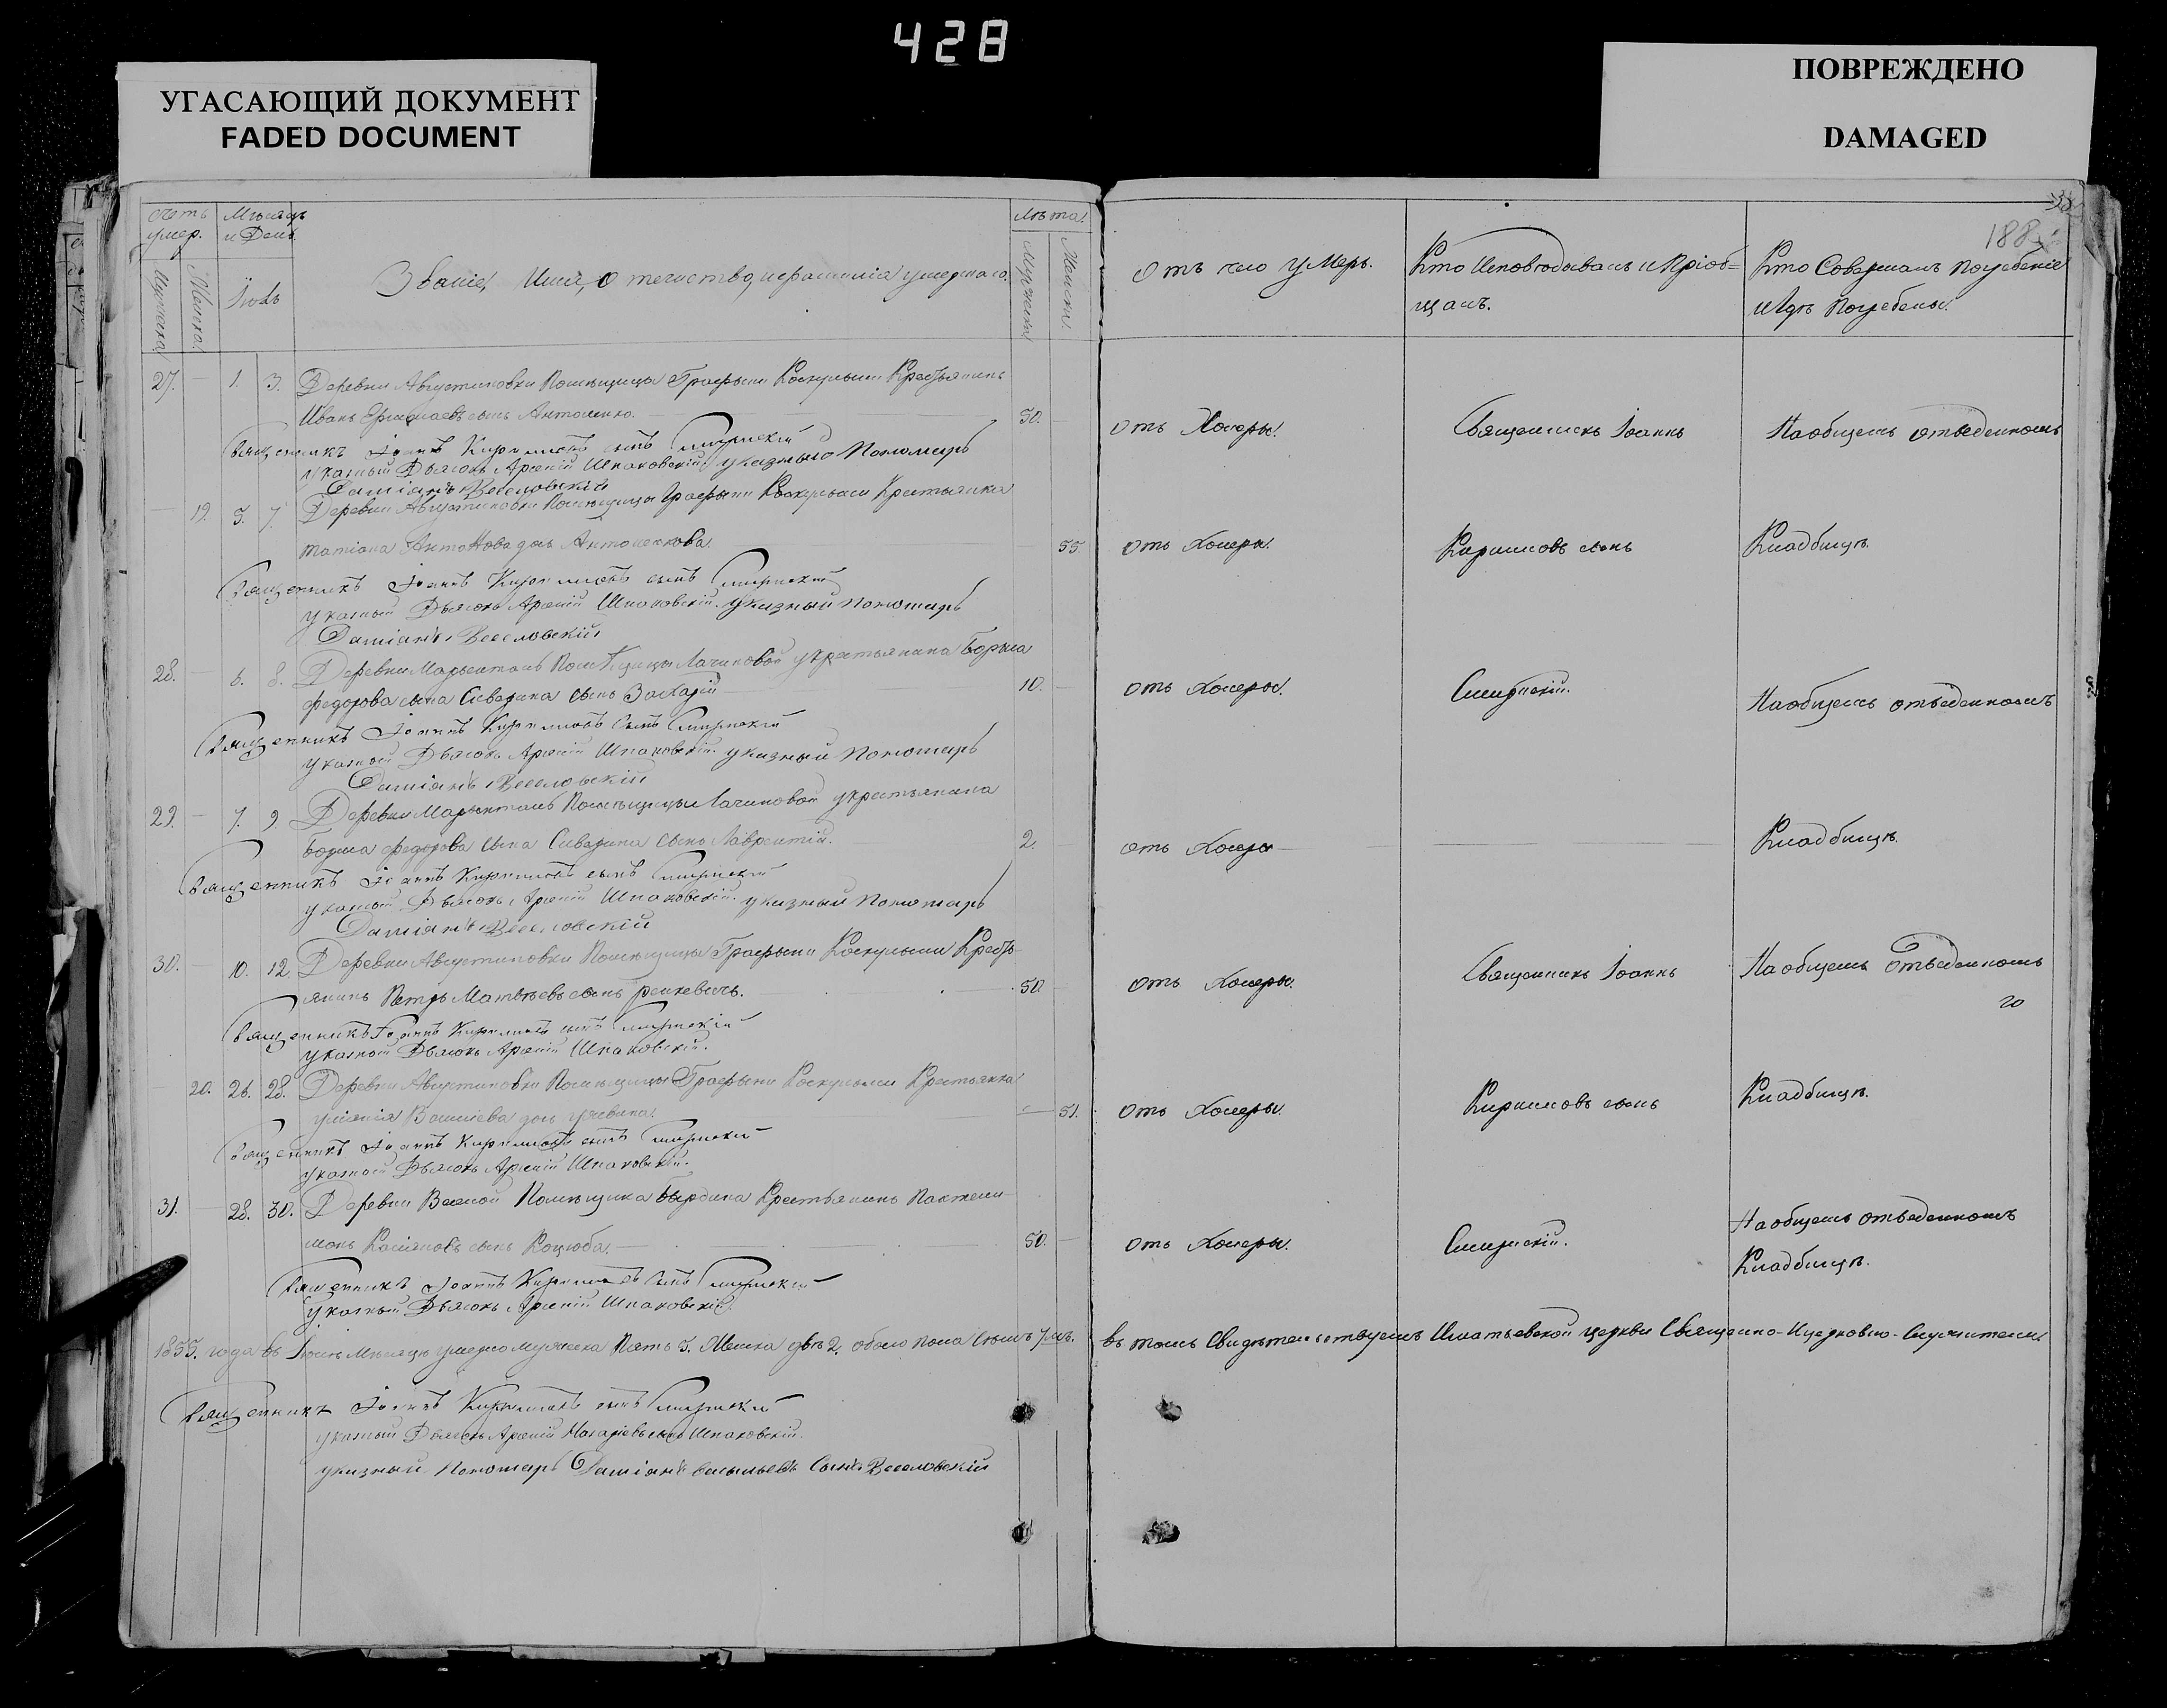 428
УГАСАЮЩИЙ ДОКУМЕНТ
FADED DOCUMENT
ПОВРЕЖДЕНО
DAMAGED
38
188
Счетъ умер.
Мужеска
Женска
Мѣсяцъ и День.
Іюль
Званіе, Имя, Отечество, и фамилія умершаго.
Лѣта.
Мужеска
Женск.
Отъ чего умеръ.
Кто Исповѣдывалъ и Пріоб=
щалъ.
Кто Совершалъ погребеніе
и гдѣ Погребены.
27. — 1. 3. Деревни Августиновки Помѣщицы Графыни Крестьянинъ
Иванъ Ермолаевъ сынъ Антоненко. 50. —
отъ Холеры. Священникъ Іоаннъ На общемъ отведенномъ
Священникъ Іоаннъ Кирилловъ сынъ Смирнскій
указный Дьячокъ Арсеній Шпаковскій указный Пономарь
Даміанъ Веселовскій
— 19. 5. 7. Деревни Августиновки Помѣщицы Графыни Крестьянка
Татіана Антонова дочь Антоненкова. 55.
отъ Холеры. Кирилловъ сынъ Кладбищѣ.
Священникъ Іоаннъ Кирилловъ сынъ Смирнскій
указный Дьячокъ Арсеній Шпаковскій. указный Пономарь
Даміанъ Веселовскій
28. — 6. 8. Деревни Помѣщицы Лачиновой у крестьянина
Федорова сына сынъ Захарій 10. —
отъ Холеры. Смирнскій. На общемъ отведенномъ
Священникъ Іоаннъ Кирилловъ сынъ Смирнскій
указный Дьячокъ Арсеній Шпаковскій. указный Пономарь
Даміанъ Веселовскій
29. — 7. 9. Деревни Помѣщицы Лачиновой у крестьянина
Федорова сына сынъ Лаврентій. 2.
отъ Холеры — Кладбищѣ.
Священникъ Іоаннъ Кирилловъ сынъ Смирнскій
указный Дьячокъ Арсеній Шпаковскій. указный Пономарь
Даміанъ Веселовскій
30. — 10. 12. Деревни Августиновки Помѣщицы Графыни Кресть-
янинъ Петръ Матвѣевъ сынъ 50. —
отъ Холеры. Священникъ Іоаннъ На общемъ отведенномъ
Священникъ Іоаннъ Кирилловъ сынъ Смирнскій
указный Дьячокъ Арсеній Шпаковскій.
— 20. 26. 28. Деревни Августиновки Помѣщицы Графыни Крестьянка
дочь — 51.
отъ Холеры. Кирилловъ сынъ Кладбищѣ.
Священникъ Іоаннъ Кирилловъ сынъ Смирнскій
указный Дьячокъ Арсеній Шпаковскій.
31. — 28. 30. Деревни Помѣщика Крестьянинъ Пантели-
монъ сынъ Коцюба. 50. —
отъ Холеры. Смирнскій. На общемъ отведенномъ
Кладбищѣ.
Священникъ Іоаннъ Кирилловъ сынъ Смирнскій
указный Дьячокъ Арсеній Шпаковскій.
1855. года въ Іюлѣ Мѣсяцѣ умерло мужеска Пять 5. Женска двѣ 2. обоего пола Семь 7мъ. въ томъ Свидѣтельствуемъ церкви Священно-Церковно-Служители
Священникъ Іоаннъ Кирилловъ сынъ Смирнскій
указный Дьячокъ Арсеній Макаріевъ сынъ Шпаковскій.
указный Пономарь Даміанъ Васильевъ Сынъ Веселовскій